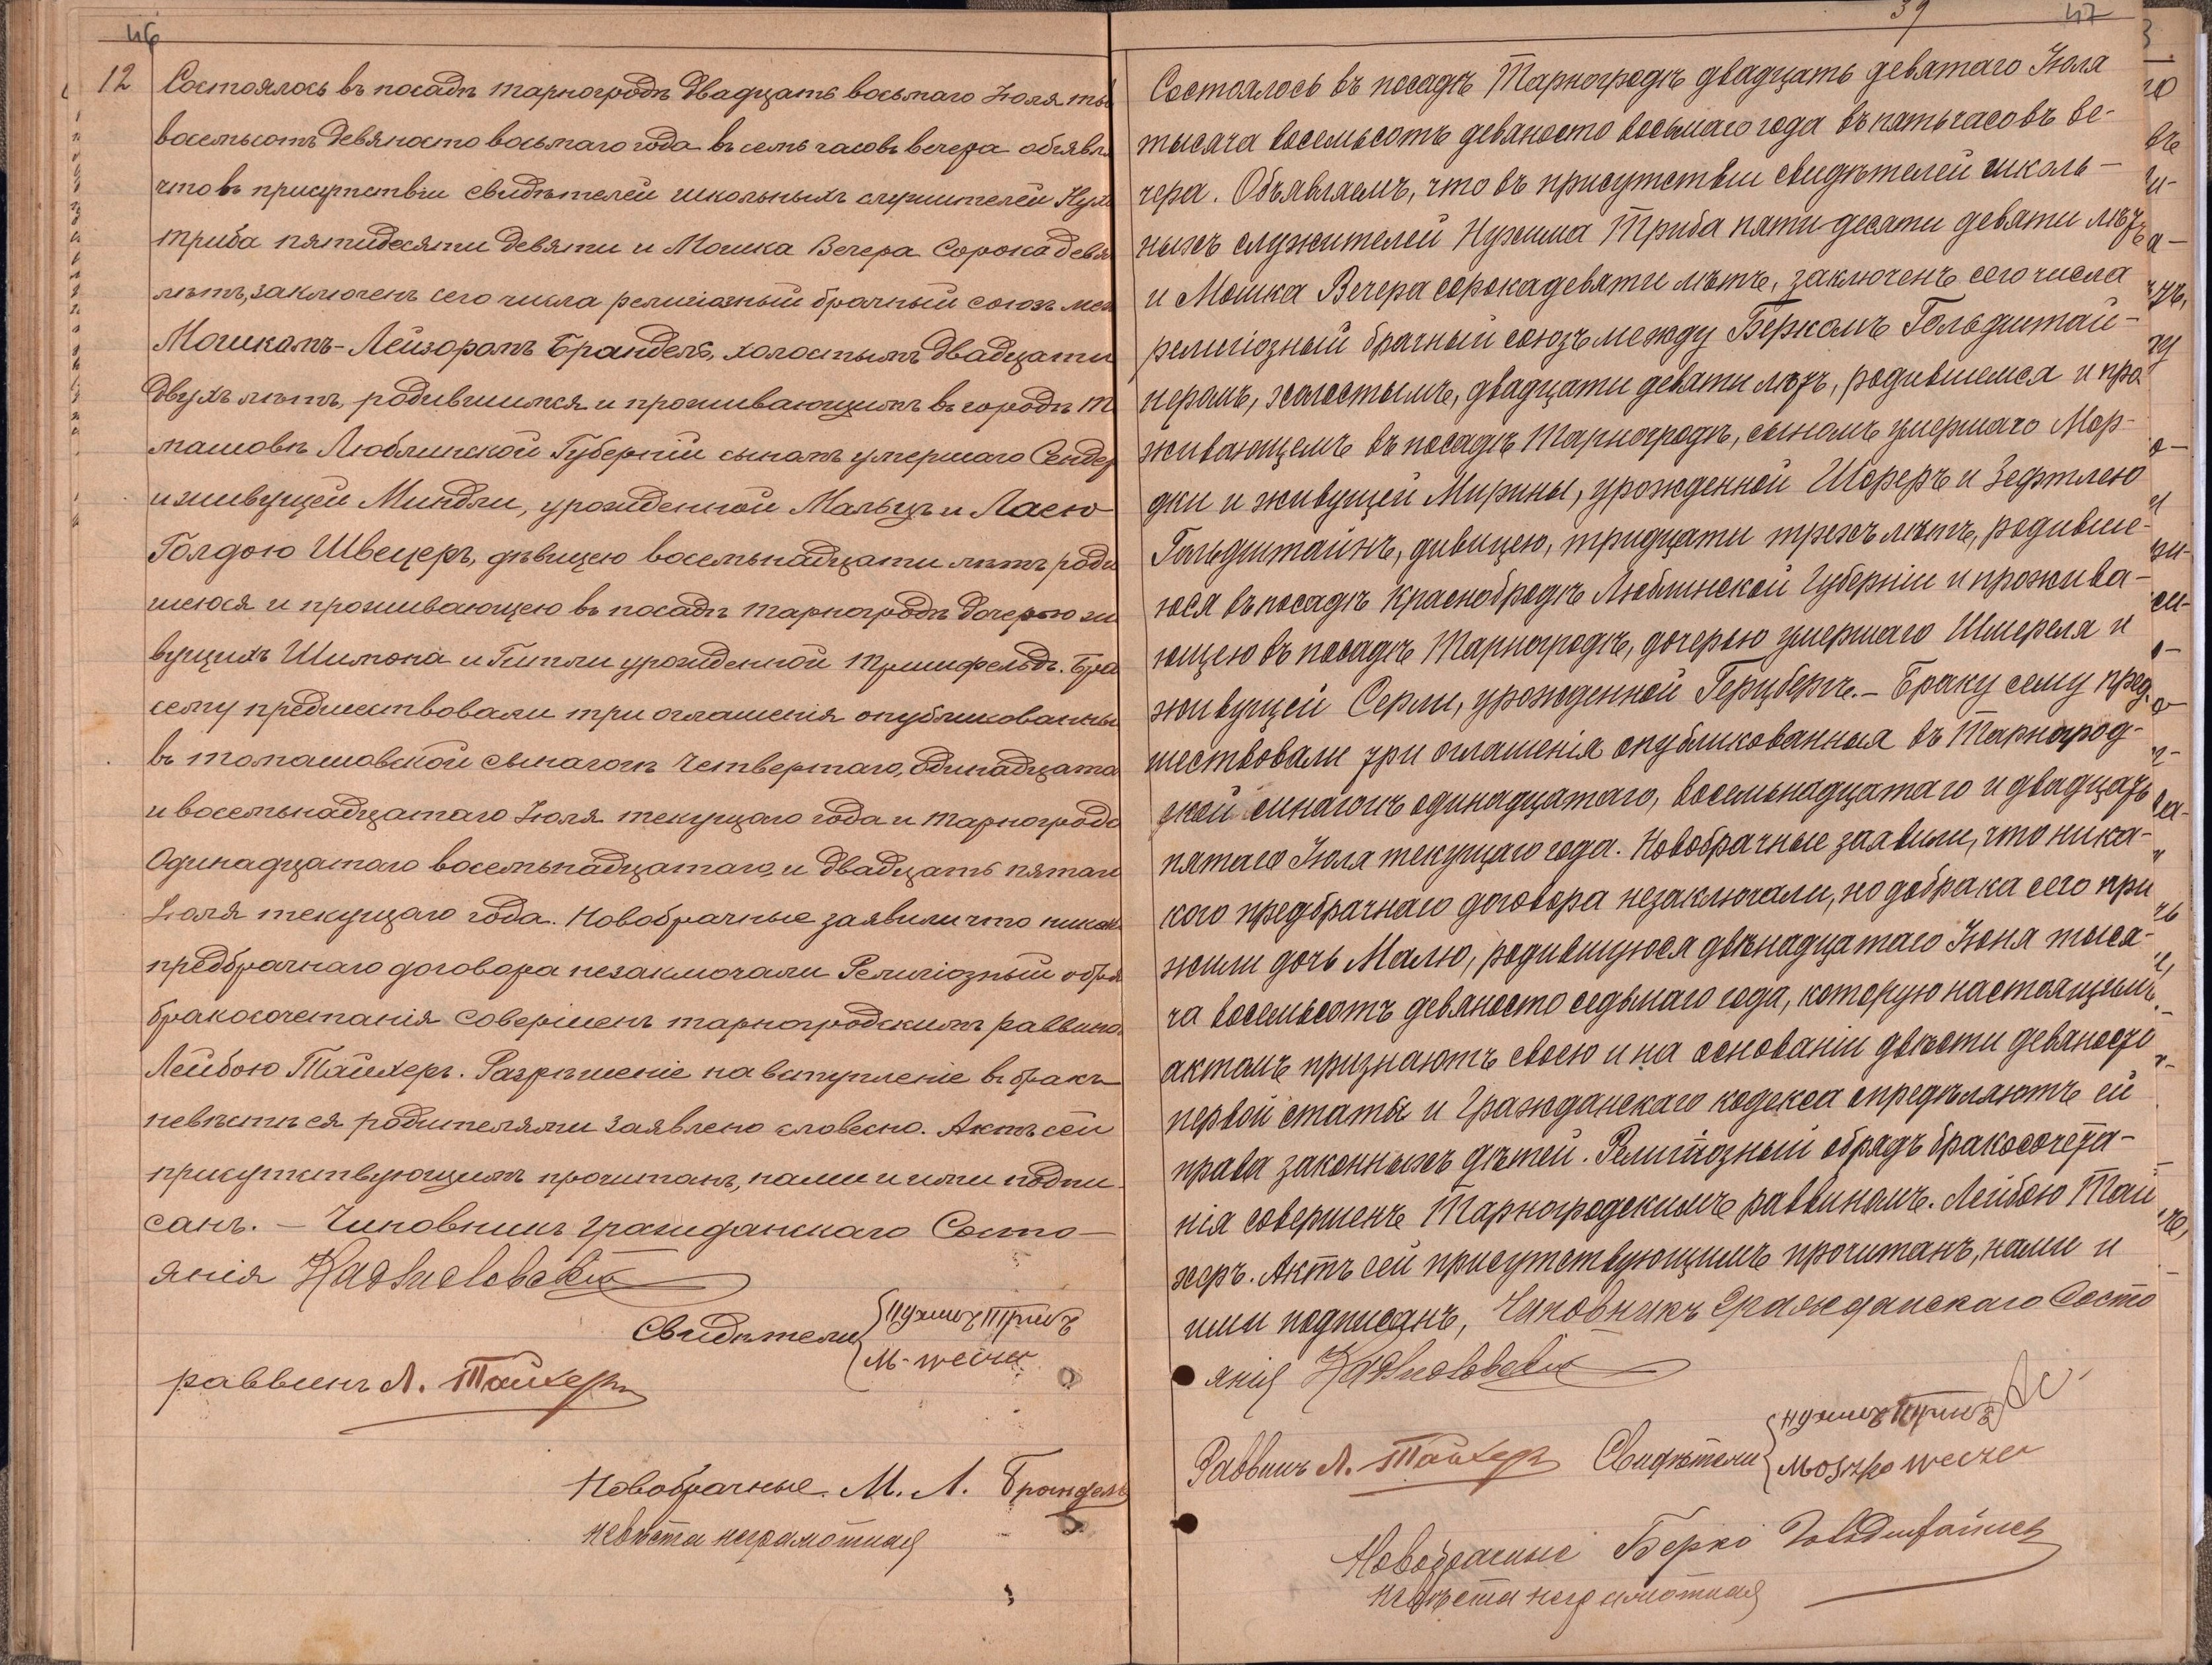 46
12 Состоялось въ посадѣ Тарногродѣ двадцать восьмаго Іюля ты
восемьсотъ девяносто восьмаго года въ семь часовъ вечера объявля
что въ присутствіи свидѣтелей школьныхъ служителей Нух
Триба пятидесяти девяти и Мошка Вечера сорока девя
лѣтъ, заключенъ сего числа религіозный брачный союзъ меж
Мошкомъ-Лейзоромъ Брандель, холостымъ двадцати
двухъ лѣтъ, родившимся и проживающимъ въ городѣ То
машовѣ Люблинской Губерніи сыномъ умершаго Сендер
и живущей Миндли, урожденной Мальцъ и Ласею
Голдою Швецеръ, дѣвицею восемьнадцати лѣтъ роди
шеюся и проживающею въ посадѣ Тарногродѣ дочерью жи
вущихъ Шимона и Гитли урожденной Тришфельдъ. Бра
сему предшествовали три оглашенія опубликованны
въ томашовской сынагогѣ четвертаго, одинадцата
и восемьнадцатаго Іюля текущаго года и тарногродс
Одинадцатаго восемьнадцатаго и двадцать пятаго
Іюля текущаго года. Новобрачные заявили что никак
предбрачнаго договора незаключали Религіозный обря
бракосочетанія совершенъ тарногродскимъ раввино
Лейбою Тайхеръ. Разрѣшеніе на вступленіе въ бракъ
невѣстѣ ея родителями заявлено словесно. Актъ сей
присутствующимъ прочитанъ, нами и ими подпи
санъ. — Чиновникъ гражданскаго Состо—
янія
Свидѣтели
раввинъ Л. Тайхеръ
Новобрачные. М. Л. Брандель
невѣста неграмотная
39 47
Состоялось въ посадѣ Тарногродѣ двадцать девятаго Іюля
тысяча восемьсотъ девяносто восьмаго года въ пять часовъ ве-
чера. Объявляемъ, что въ присутствіи свидѣтелей школь-
ныхъ служителей Нухима Триба пяти-десяти девяти лѣтъ
и Мошка Вечера сорока девяти лѣтъ, заключенъ сего числа
религіозный брачный союзъ между Беркомъ Гольдштай-
неромъ, холостымъ, двадцати девяти лѣтъ, родившемся и про
живающемъ въ посадѣ Тарногродѣ, сыномъ умершаго Мор-
дки и живущей Мирины, урожденной Шореръ и Зефтлею
Гольдштайнъ, дивицею, тридцати трехъ лѣтъ, родивше-
юся въ посадѣ Краснобродѣ Люблинской Губерніи и прожива-
ющею въ посадѣ Тарногродѣ, дочерью умершаго Шмереля и
живущей Серли, урожденной Герцбергъ. - Браку сему пред
шествовали три оглашенія опубликованныя въ Тарногрод-
ской синагогѣ одинадцатаго, восемьнадцатаго и двадцать
пятаго Іюля текущаго года. Новобрачные заявили, что ника-
кого предбрачнаго договора незаключали, но до брака сего при
жили дочь Малю, родившуюся двѣнадцатаго Іюня тыся-
ча восемьсотъ девяносто седьмаго года, которую настоящимъ
актомъ признаютъ своею и на основаніи двѣсти девяносто
первой статьи Гражданскаго кодекса опредѣляютъ ей
права законныхъ дѣтей. Религіозный обрядъ бракосочета-
нія совершенъ Тарногродскимъ раввиномъ. Лейбою Тай
херъ. Актъ сей присутствующимъ прочитанъ, нами и
ими подписанъ, Чиновникъ Гражданскаго Состо
янія
Раввинъ Л. Тайхеръ Свидѣтели
Новобрачные Берко Гольдштайнеръ
невѣста неграмотная